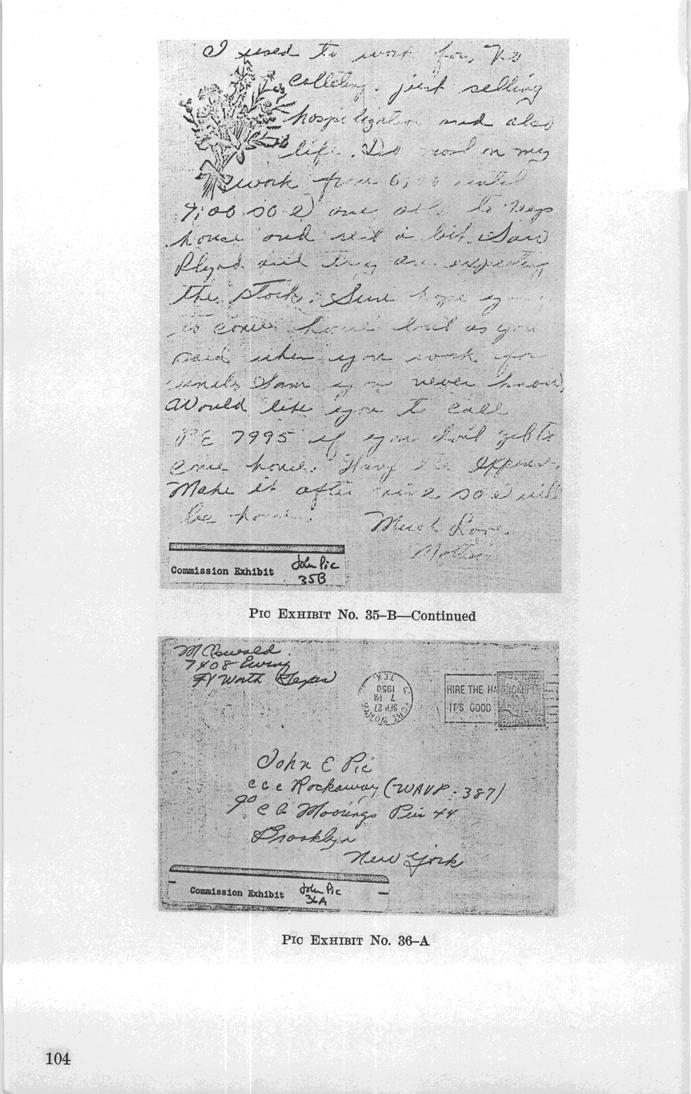 I used to work for, No
collecting, just selling
hospitalization and also
life. Do most on my
work from 6:00 until
9:00 so I am able to keep
house and rest a bit. Saw
and they are expecting
the stork. Sure hope you
to come home but as you
said when you work for
uncle Sam you never know,
Would like you to call
PE 7995 if you don't get to
come home. Hang the expense.
Make it after nine so I will
be home.
Much Love.
Mother
Commission Exhibit John Pic
35B
PIC EXHIBIT NO. 35–B—Continued
M Oswald.
7408 Ewing
Ft Worth Texas
FORT WORTH
SEP 27
7 PM
1950
TEX.
HIRE THE
IT'S GOOD
John E Pic
c g c Rockaway (WAVP-387)
c/o C G Moorings Pier 44
Brooklyn
New York
Commission Exhibit John Pic
36A
PIC EXHIBIT NO. 36–A
104